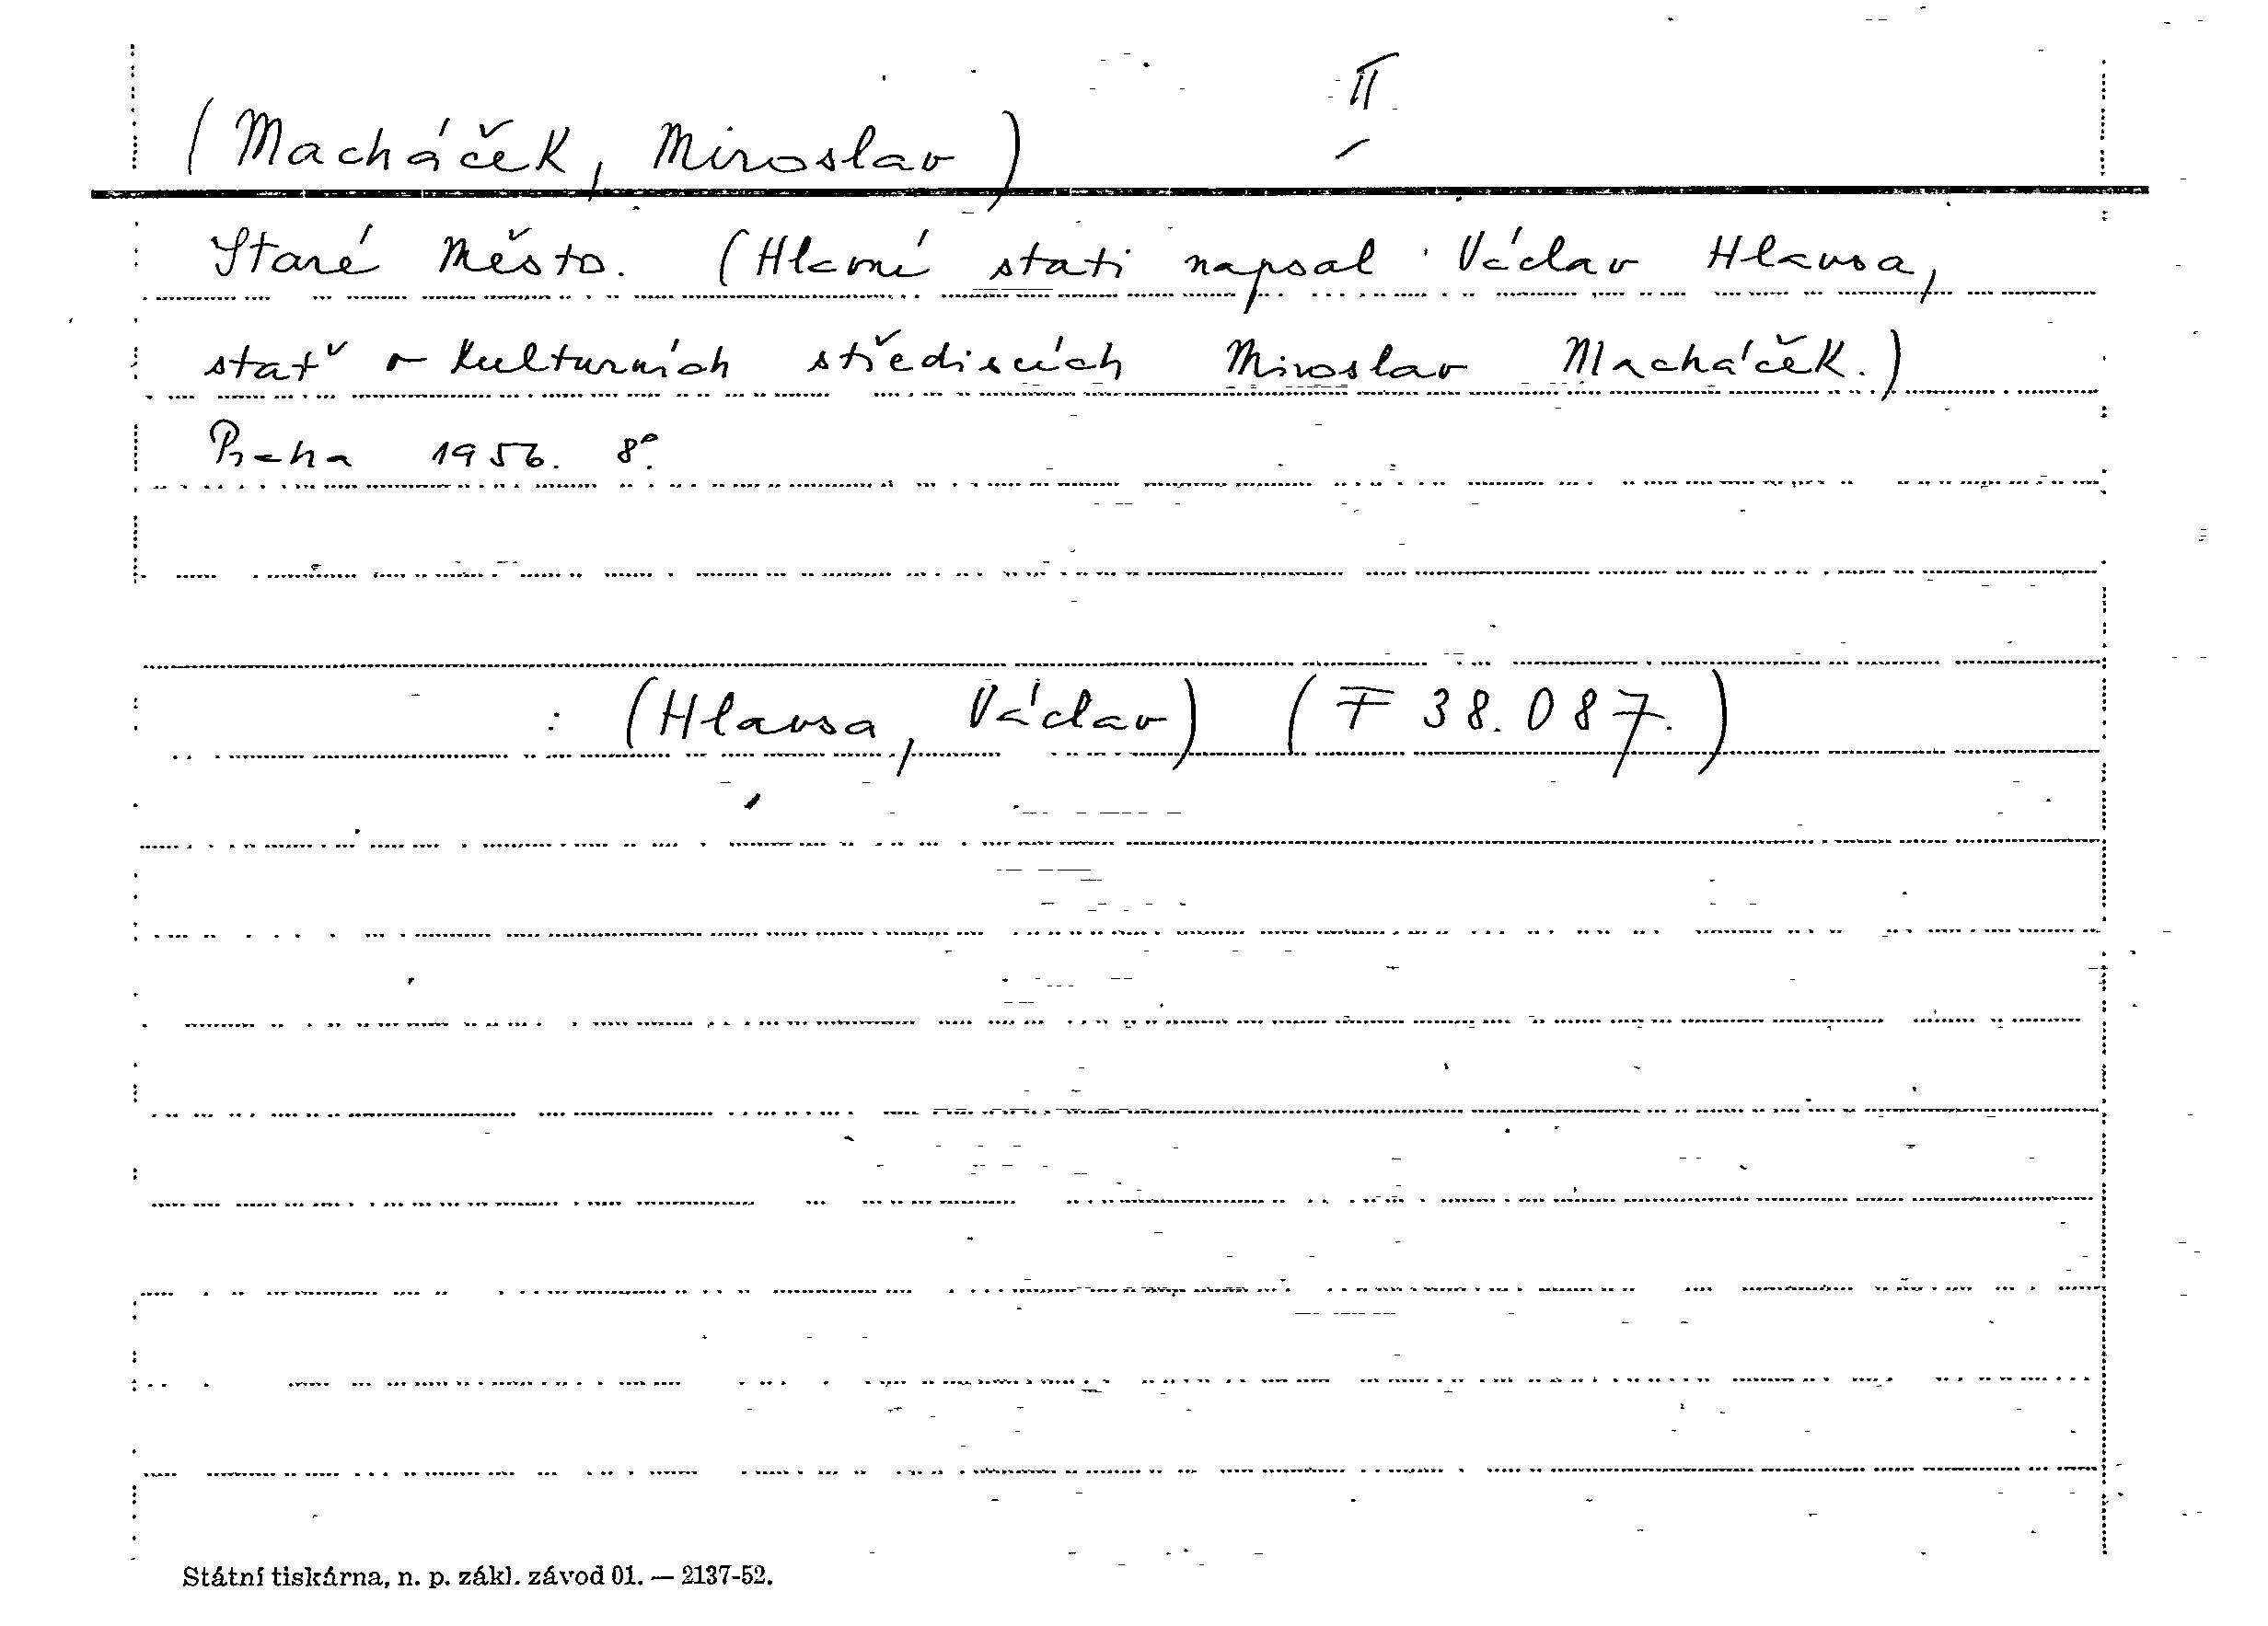 II
(Macháček, Miroslav)
Staré Město. (Hlavní stati napsal Václav Hlavsa,
stať o kulturních střediscích Miroslav Macháček.)
Praha 1956. 8°.
: (Hlavsa, Václav) (F 38.087.)
Státní tiskárna, n. p. zákl. závod 01. — 2137-52.